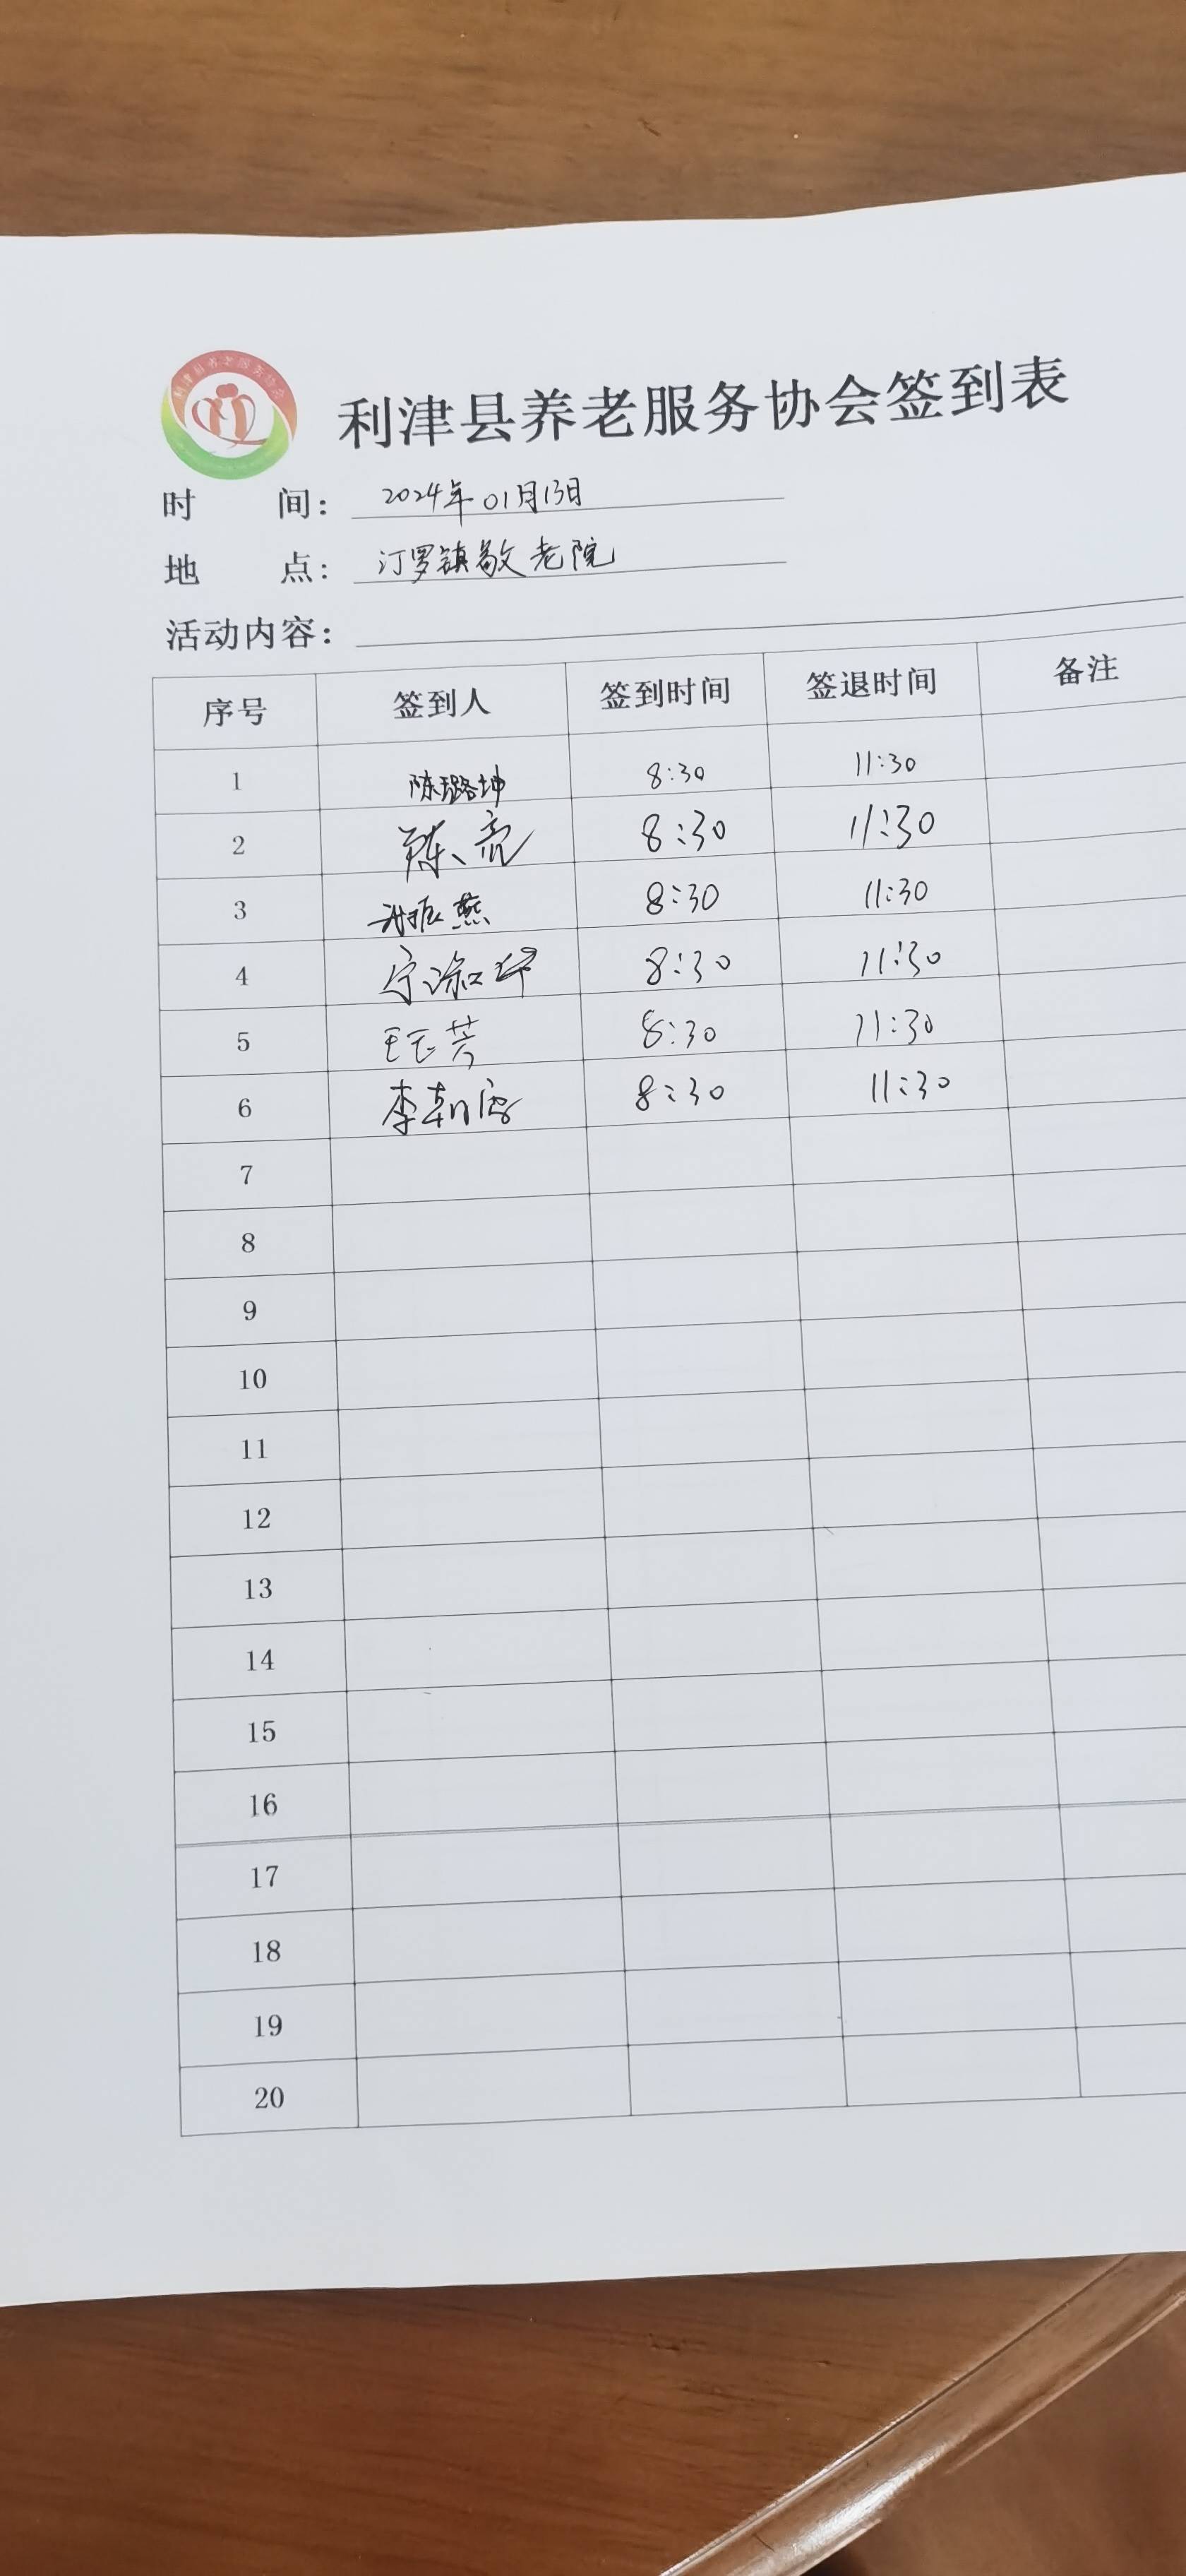 利津县养老服务协会
利津县养老服务协会签到表
时 间: 2024年01月13日
地 点: 汀罗镇敬老院
活动内容:
序号 签到人 签到时间 签退时间 备注
1 陈璐坤 8:30 11:30
2 陈亮 8:30 11:30
3 燕 8:30 11:30
4 宁淑华 8:30 11:30
5 王玉芳 8:30 11:30
6 李朝 8:30 11:30
7
8
9
10
11
12
13
14
15
16
17
18
19
20